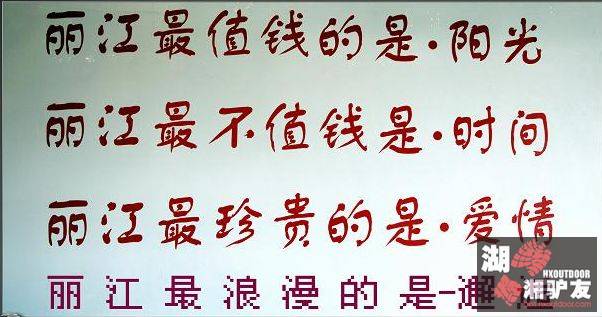 丽江最值钱的是·阳光
丽江最不值钱是·时间
丽江最珍贵的是·爱情
丽江最浪漫的是-邂
湖
HXOUTDOOR
湘驴友